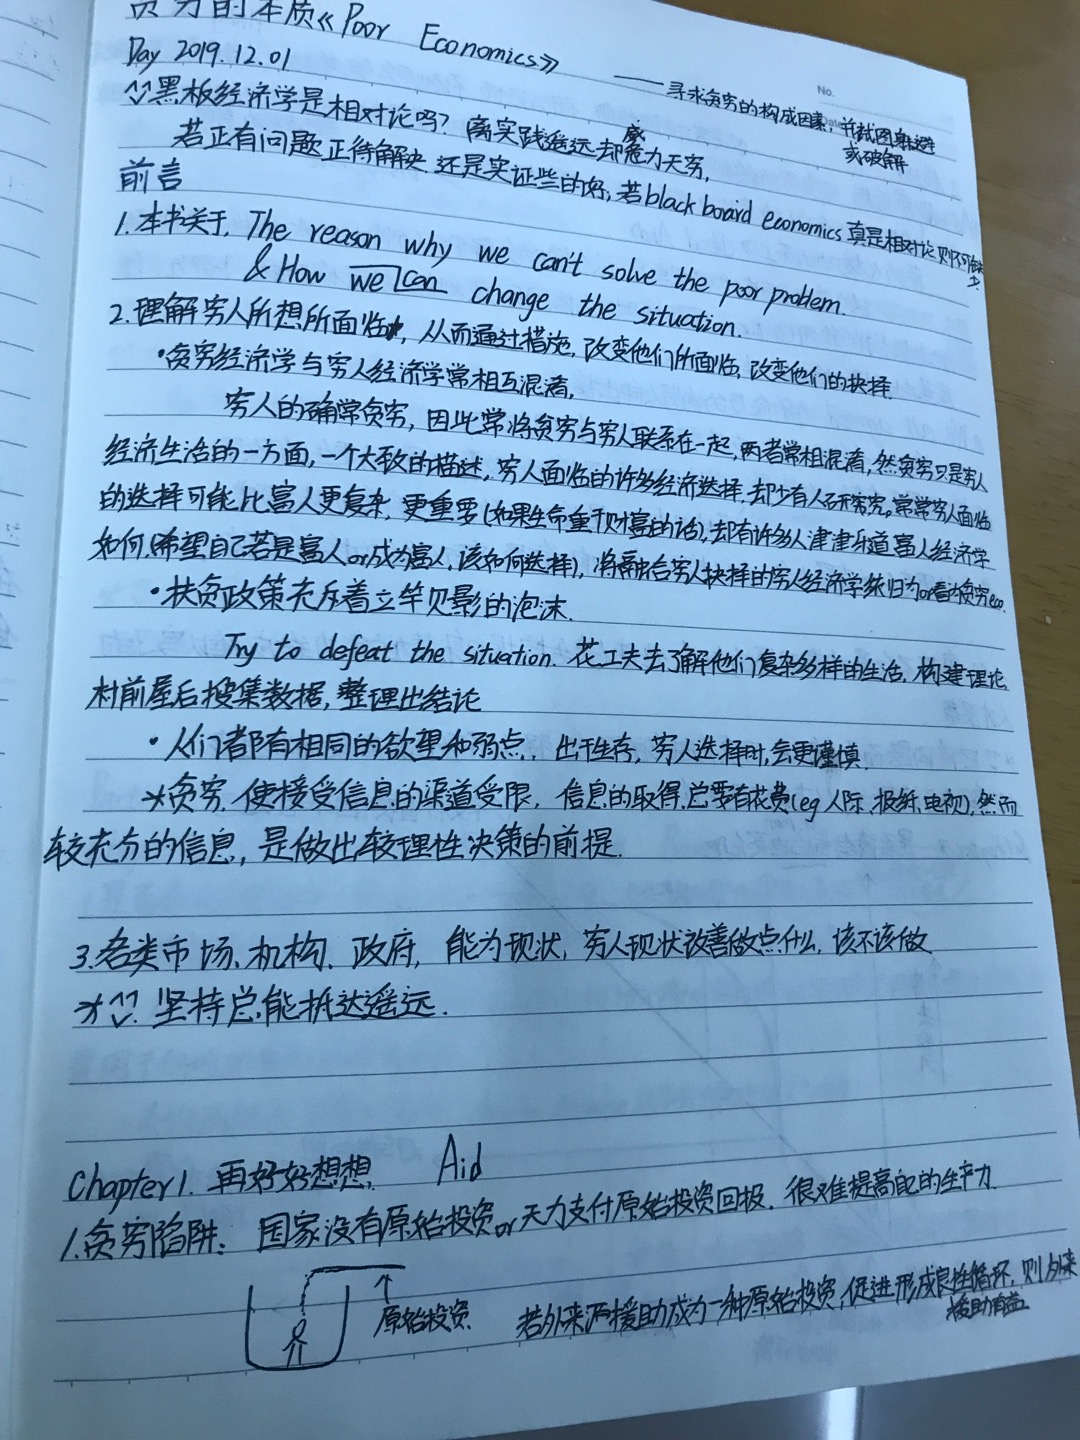 贫穷的本质《Poor Economics》
——寻求贫穷的构成因素，并试图躲避
或破解
No.
Day 2019.12.01
黑板经济学是相对论吗？离实践遥远却威力无穷，
若正有问题正待解决 还是实证些的好，若black board economics 真是相对论 则不可缺少
前言
1.本书关于，The reason why we can't solve the poor problem.
& How we can change the situation.
2.理解穷人所想所面临，从而通过措施，改变他们所面临，改变他们的抉择
·贫穷经济学与穷人经济学常相互混淆，
穷人的确常贫穷，因此常将贫穷与穷人联系在一起，两者常相混淆，然贫穷只是穷人
经济生活的一方面，一个大致的描述，穷人面临的许多经济选择，却少有人研究。常常穷人面临
的选择可能比富人更复杂，更重要（如果生命重于财富的话），却有许多人津津乐道富人经济学
如何（希望自己若是富人or成为富人，该如何选择），将融合穷人抉择的穷人经济学统归为or看为贫穷eco.
·扶贫政策充斥着立竿见影的泡沫.
Try to defeat the situation. 花工夫去了解他们复杂多样的生活，构建理论
村前屋后搜集数据，整理出结论
·人们都有相同的欲望和弱点，出于生存，穷人选择时，会更谨慎.
*贫穷，使接受信息的渠道受限，信息的取得，总要有花费（eg 人际、报纸、电视），然而
较充分的信息，是做出较理性决策的前提.
3.各类市场、机构、政府，能为现状，穷人现状改善做点什么，该不该做
* 坚持总能抵达遥远.
Chapter 1. 再好好想想. Aid
1.贫穷陷阱：国家没有原始投资or无力支付原始投资回报，很难提高自己的生产力
原始投资 若外来援助成为一种原始投资，促进形成良性循环，则外来
援助有益